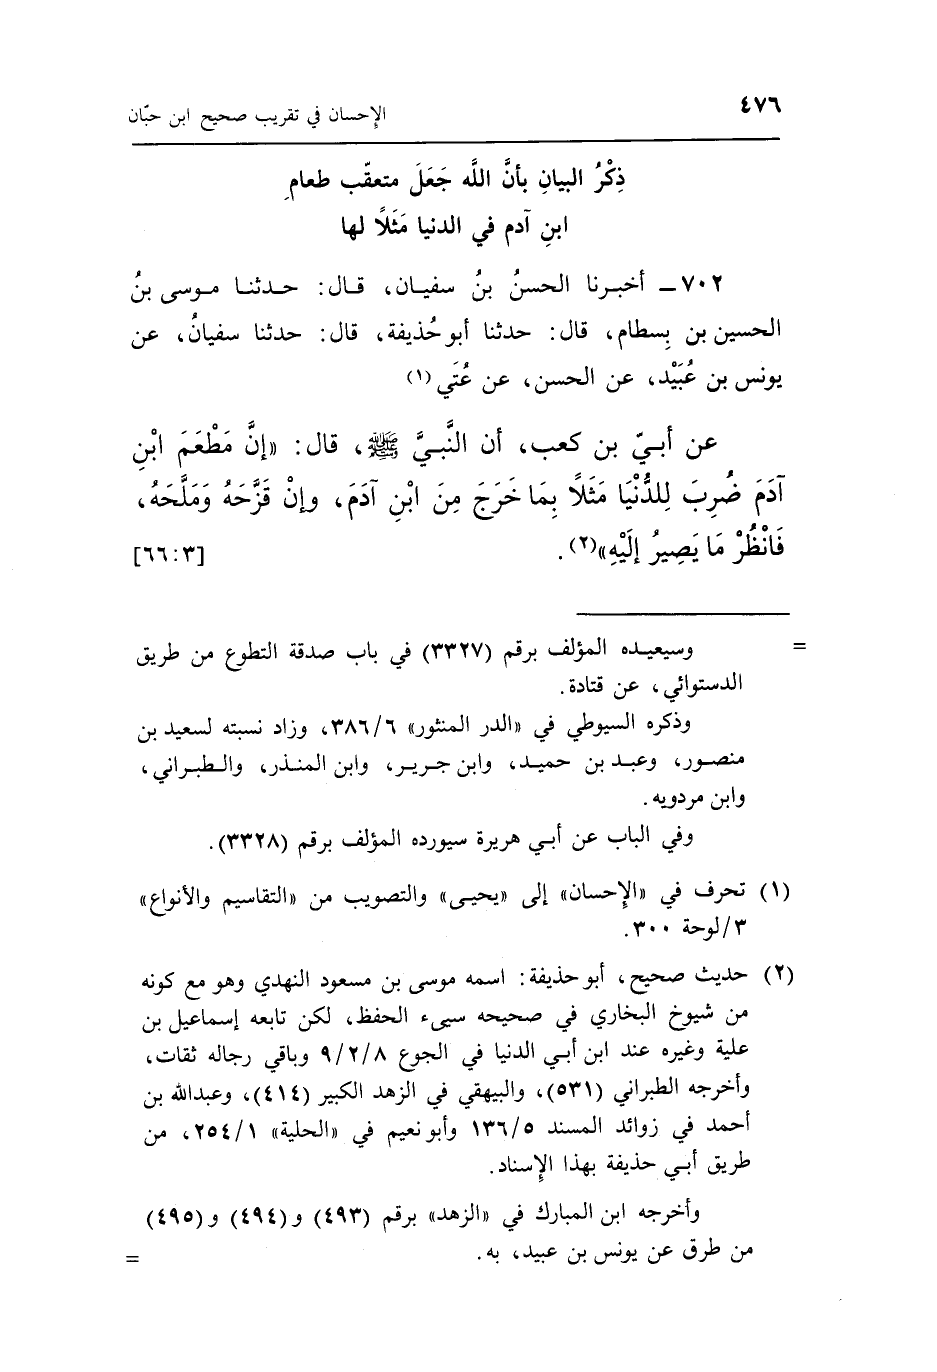 ٤٧٦
الإحسان في تقريب صحيح ابن حبّان
ذِكْرُ البيانِ بأنَّ اللَّه جَعَلَ متعقّب طعامِ
ابنِ آدم في الدنيا مَثَلاً لها
٧٠٢ـ أخبرنا الحسنُ بنُ سفيان، قال: حدثنا موسى بنُ
الحسين بن بِسطام، قال: حدثنا أبو حُذيفة، قال: حدثنا سفيانُ، عن
يونس بن عُبَيْد، عن الحسن، عن عُتَي(١)
عن أبيّ بن كعب، أن النَّبيَّ ﷺ، قال: «إنَّ مَطْعَمَ ابْنِ
آدَمَ ضُرِبَ لِلدُّنْيَا مَثَلاً بِمَا خَرَجَ مِنَ ابْنِ آدَمَ، وإنْ قَزَّحَهُ وَمَلَّحَهُ،
فَانْظُرْ مَا يَصِيرُ إلَيْهِ»(٢). [٦٦:٣]
= وسيعيده المؤلف برقم (٣٣٢٧) في باب صدقة التطوع من طريق
الدستوائي، عن قتادة.
وذكره السيوطي في «الدر المنثور» ٣٨٦/٦، وزاد نسبته لسعيد بن
منصور، وعبد بن حميد، وابن جرير، وابن المنذر، والطبراني،
وابن مردويه.
وفي الباب عن أبي هريرة سيورده المؤلف برقم (٣٣٢٨).
(١) تحرف في «الإحسان» إلى «يحيى» والتصويب من «التقاسيم والأنواع»
٣/لوحة ٣٠٠.
(٢) حديث صحيح، أبو حذيفة: اسمه موسى بن مسعود النهدي وهو مع كونه
من شيوخ البخاري في صحيحه سيىء الحفظ، لكن تابعه إسماعيل بن
علية وغيره عند ابن أبي الدنيا في الجوع ٩/٢/٨ وباقي رجاله ثقات،
وأخرجه الطبراني (٥٣١)، والبيهقي في الزهد الكبير (٤١٤)، وعبدالله بن
أحمد في زوائد المسند ١٣٦/٥ وأبو نعيم في «الحلية» ٢٥٤/١، من
طريق أبي حذيفة بهذا الإسناد.
وأخرجه ابن المبارك في «الزهد» برقم (٤٩٣) و(٤٩٤) و(٤٩٥)
من طرق عن يونس بن عبيد، به. =